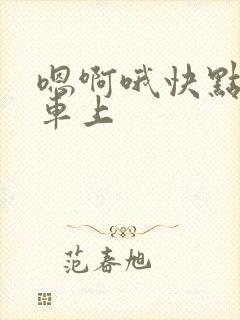 嗯啊哦快點
車上
范春旭